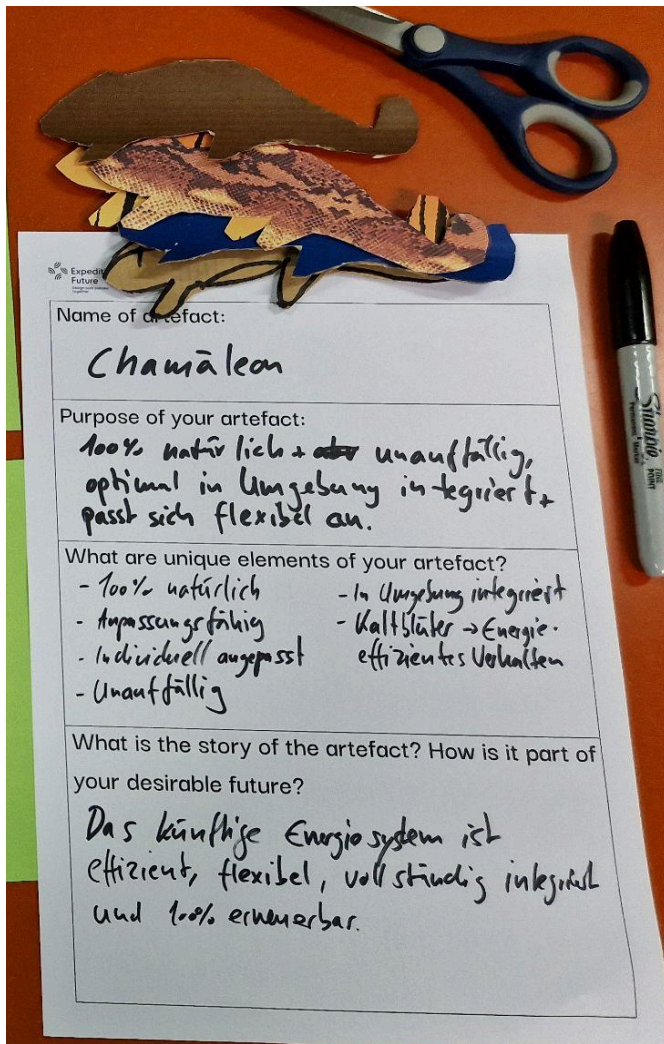 Expedit
Future
Name of artefact:
Chamäleon
Purpose of your artefact:
100% natürlich + unauffällig,
optimal in Umgebung integriert +
passt sich flexibel an.
What are unique elements of your artefact?
- 100% natürlich
- Anpassungsfähig
- Individuell angepasst
- Unauffällig
- In Umgebung integriert
- Kaltblüter → Energie-
effizientes Verhalten
What is the story of the artefact? How is it part of
your desirable future?
Das künftige Energiesystem ist
effizient, flexibel, vollständig integriert
und 100% erneuerbar.
Sharpie
Permanent Marker
FINE
POINT